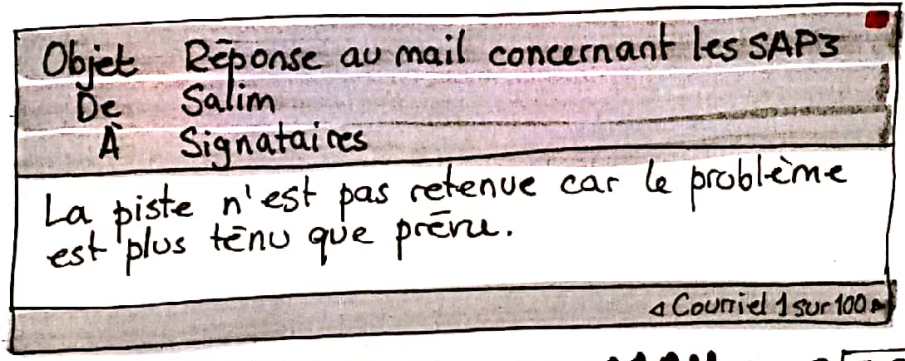 Objet Réponse au mail concernant les SAP3
De Salim
À Signataires
La piste n'est pas retenue car le problème
est plus ténu que prévu.
◃ Courriel 1 sur 100 ▸